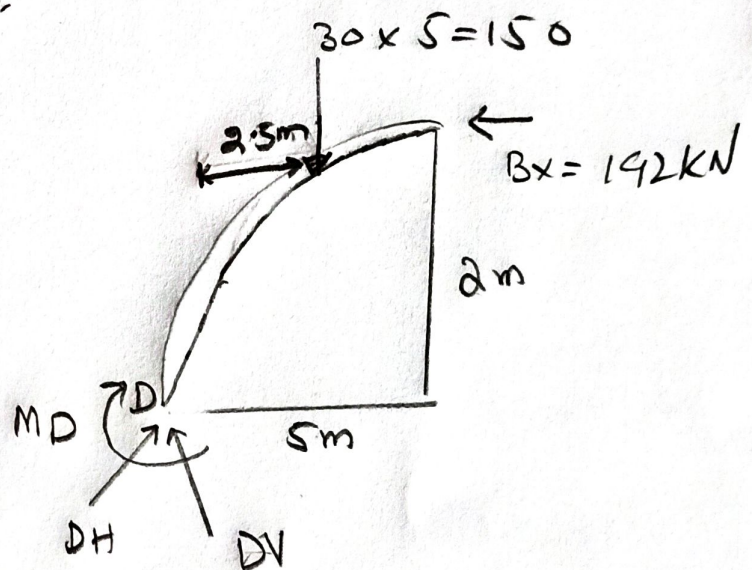 30 x 5 = 150
2.5m
Bx = 192KN
2m
D
MD
5m
DH
DV